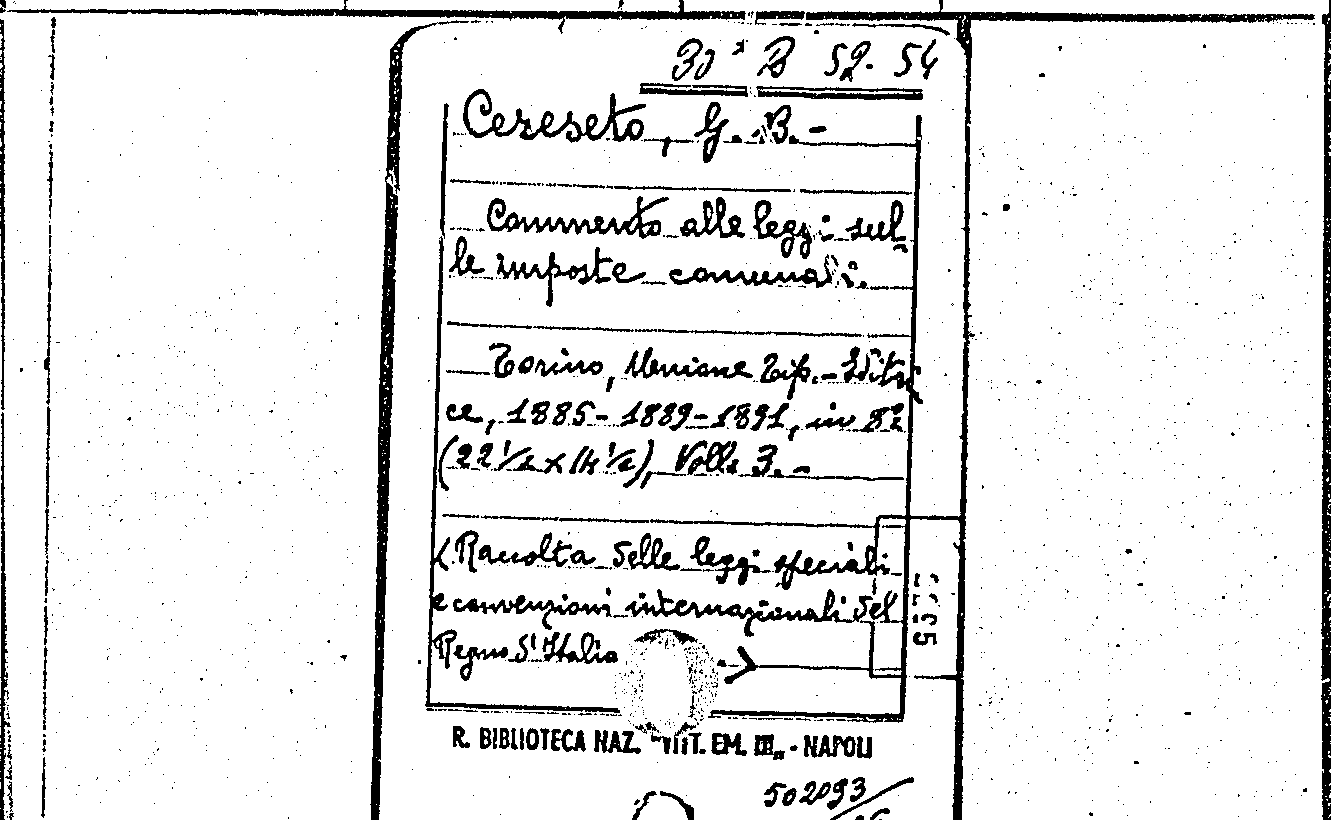 30ª B 52-54
Cereseto, G. B. -
Commento alle leggi sul-
le imposte comunali.
Torino, Unione Tip. - Editri
ce, 1885-1889-1891, in 8º
(22 1/2 x 14 1/2), Voll. 3. -
(Raccolta delle leggi speciali
e convenzioni internazionali del
Regno d'Italia . >
R. BIBLIOTECA NAZ. "VITT. EM. III„ - NAPOLI
502093/